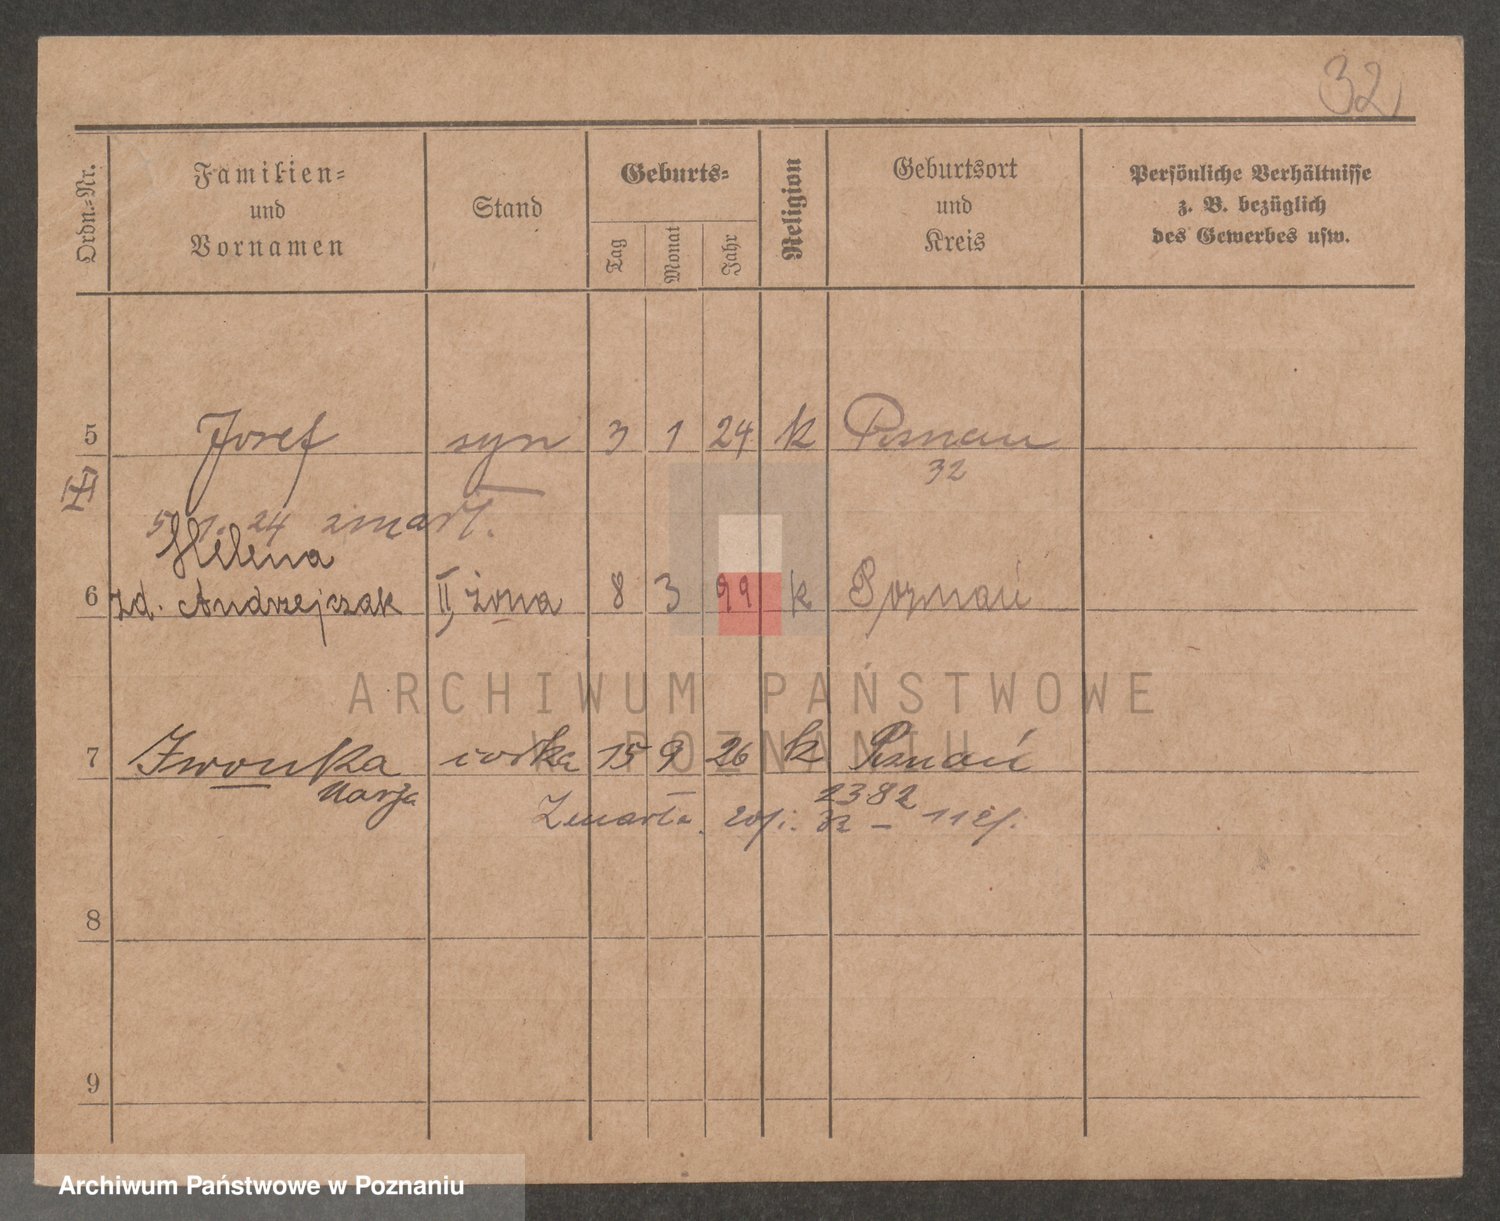 32
Ordn.-Nr.
Familien-
und
Vornamen
Stand
Geburts-
Tag
Monat
Jahr
Religion
Geburtsort
und
Kreis
Persönliche Verhältnisse
z. B. bezüglich
des Gewerbes usw.
5 Josef syn 3 1 24 k Posnau
32
5 1. 24 zmarł.
Helena
6 zd. Andrzejczak II, żona 8 3 99 k Poznań
ARCHIWUM PAŃSTWOWE
W POZNANIU
7 Iwonka córka 15 9 26 k Poznań
Marja
2382
Zmarła 32 –
8
9
Archiwum Państwowe w Poznaniu